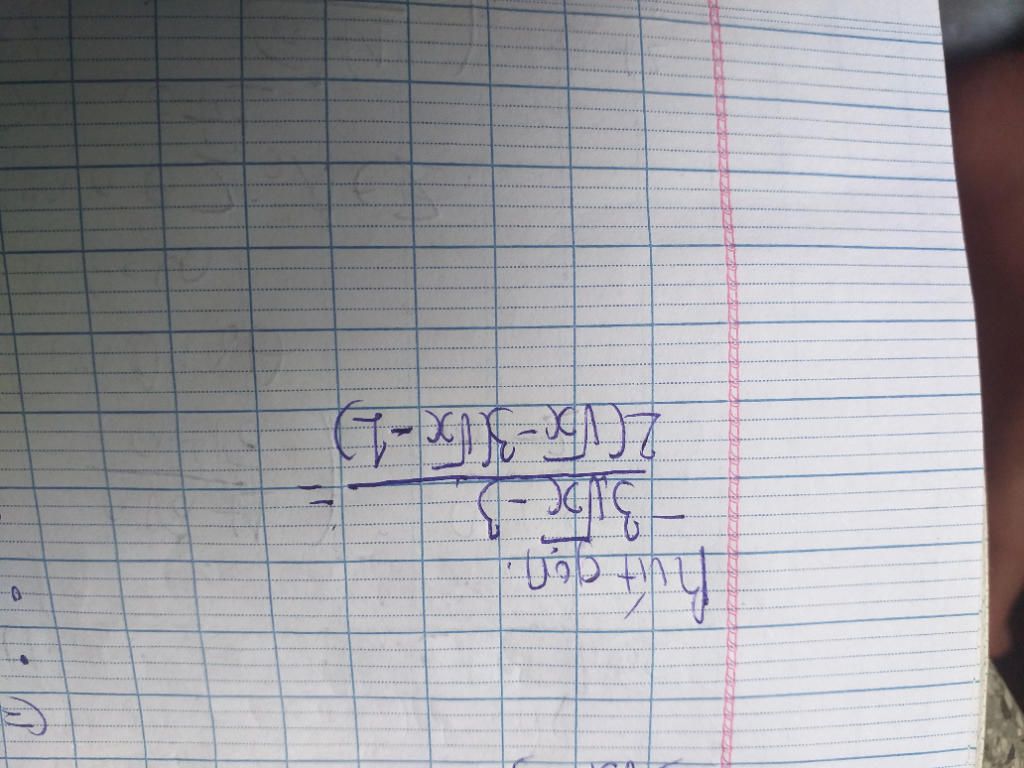 Rút gọn.
-3√x - 3
2(√x - 3)(√x - 1) =